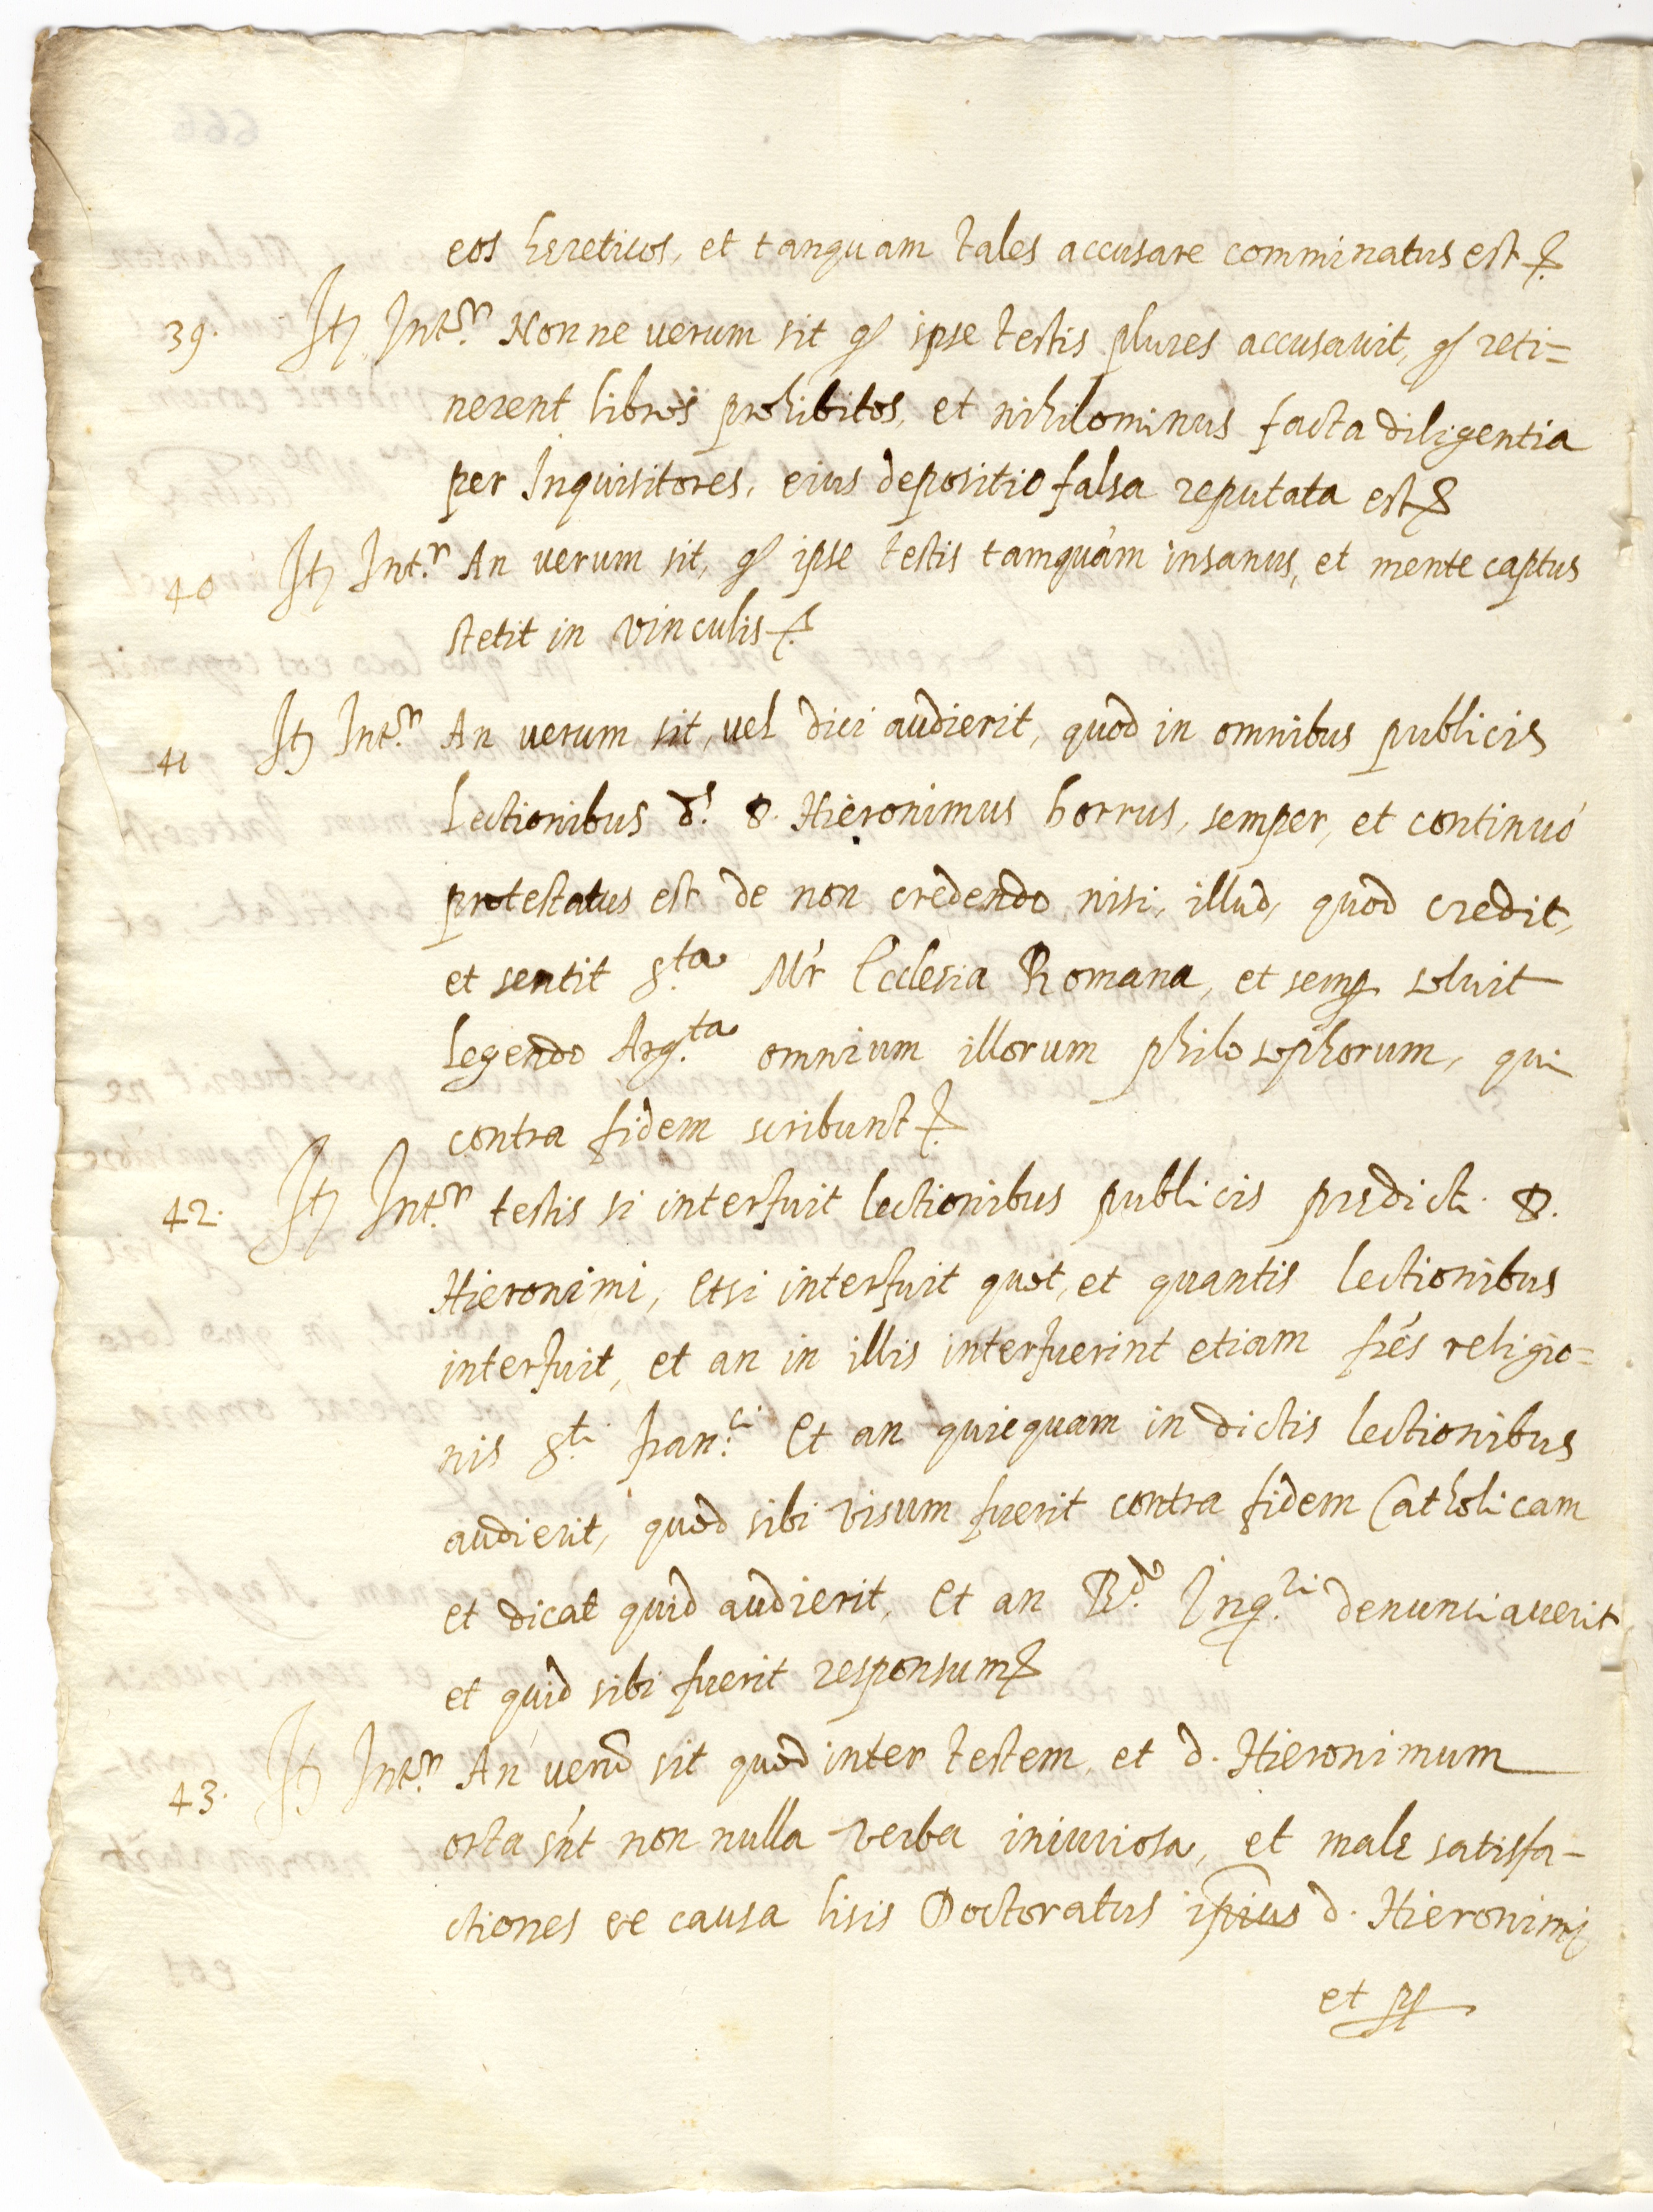 eos hereticos, et tanquam tales accusare comminatus est &.
39. Itz Int.r Non ne uerum sit qd ipse testis plures accusauit, qd reti=
nerent libros prohibitos, et nihilominus facta diligentia
per Inquisitores, eius depositio falsa reputata est &
40 Itz Int.r An uerum sit, qd ipse testis tamquàm insanus, et mente captus
stetit in vinculis &.
41 Itz Int.r An uerum sit, uel dici audierit, quod in omnibus publicis
Lectionibus d.s D. Hieronimus borrus, semper, et continuó
protestatus est de non credendo nisi, illud, quod credit,
et sentit s.ta Mr Ecclesia Romana, et semp soluit
legendo Arg.ta omnium illorum philosophorum, qui
contra fidem scribunt &.
42. Itz Int.r testis si interfuit lectionibus publicis predict. D.
Hieronimi, Et si interfuit quot, et quantis lectionibus
interfuit, et an in illis interfuerint etiam frés religio=
nis s.ti fran.ci Et an quicquam in dictis lectionibus
audierit, quod sibi visum fuerit contra fidem Catholicam
et dicat quid audierit, Et an R.do Inq.ri denuntiauerit,
et quid sibi fuerit responsum &
43. Itz Int.r An verũ sit quod inter testem, et d. Hieronimum
orta sńt non nulla verba iniuriosa, et male satisfa-
ctiones ex causa lisis Doctoratus ipius d. Hieronimi
et